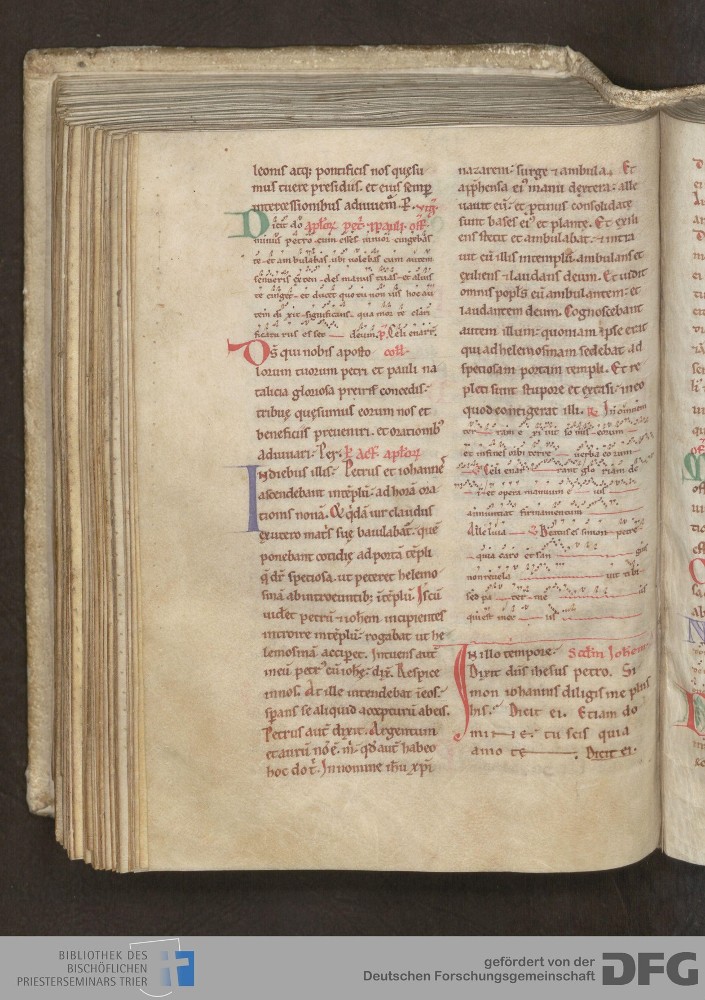 leonis atq; pontificis nos quęsu
mus tuere presidiis. et eius semp
intercessionibus adiuuem. P. vigł
Dicit dn̄s aplor̄ petri & pauli. off̄
minus petro cum esses iunior cingebas
te et ambulabas ubi uolebas cum autem
senueris exten des manus tuas et alius
te cinget et ducet quo tu non uis hoc au
tem di xit significans qua mor te clari
ficaturus esset deum. p̄. Celi enarr̄.
Ds̄ qui nobis aposto coll
lorum tuorum petri et pauli na
talicia gloriosa preire concedis.
tribue quęsumus eorum nos et
beneficiis preueniri. et orationib;
adiuuari. Per. L̄ act̄ aplor̄
In diebus illis. Petrus et iohannes
ascendebant in tēplū. ad horā ora
tionis nonā. Et qdā uir claudus
ex utero matris suę baiulabat. quē
ponebant cotidie ad portā tēpli
q̄ dr̄ speciosa. ut peteret helemo
sinā ab introeuntib; tēplū. Is cū
uidiset petrū & iohem incipientes
introire in tēplū. rogabat ut he
lemosinā acciperet. Intuens aut̄
in eū petr' cū iohe. dix̄. Respice
in nos. At ille intendebat in eos.
sperans se aliquid accepturū ab eis.
Petrus aut̄ dixit. Argentum
et aurū nō ē m̄. qd aut̄ habeo
hoc do t̄. In nomine ihū xpī
nazareni. surge & ambula. Et
apphensa ei' manu dextera. alle
uauit eū. et ptinus consolidate
sunt bases ei' et plante. Et exili
ens stetit et ambulabat. & intra
uit cū illis in templū. ambulans et
exiliens & laudans deum. Et uidit
omnis popls eū ambulantem. et
laudantem deum. Cognoscebant
autem illum. quoniam ipse erat
qui ad helemosinam sedebat ad
speciosam portam templi. Et re
pleti sunt stupore et extasi. in eo
quod contigerat illi. R̄ In omnem
ter ram e xi uit so nus eorum
et in fines orbis terre uerba eo rum
V Celi enar rant glo riam de
i et opera manuum e ius
annuntiat firmamentum
Alle luia V Beatus es simon petre
quia caro et san guis
non reuela uit tibi
sed pa ter me us
qui est in ce lis
In illo tempore. Scdm Iohem
Dixit dn̄s ihesus petro. Si
mon iohannis diligis me plus
his. Dicit ei. Etiam do
mi n e. tu scis quia
amo te. Dicit ei.
BIBLIOTHEK DES
BISCHÖFLICHEN
PRIESTERSEMINARS TRIER
gefördert von der
Deutschen Forschungsgemeinschaft
DFG